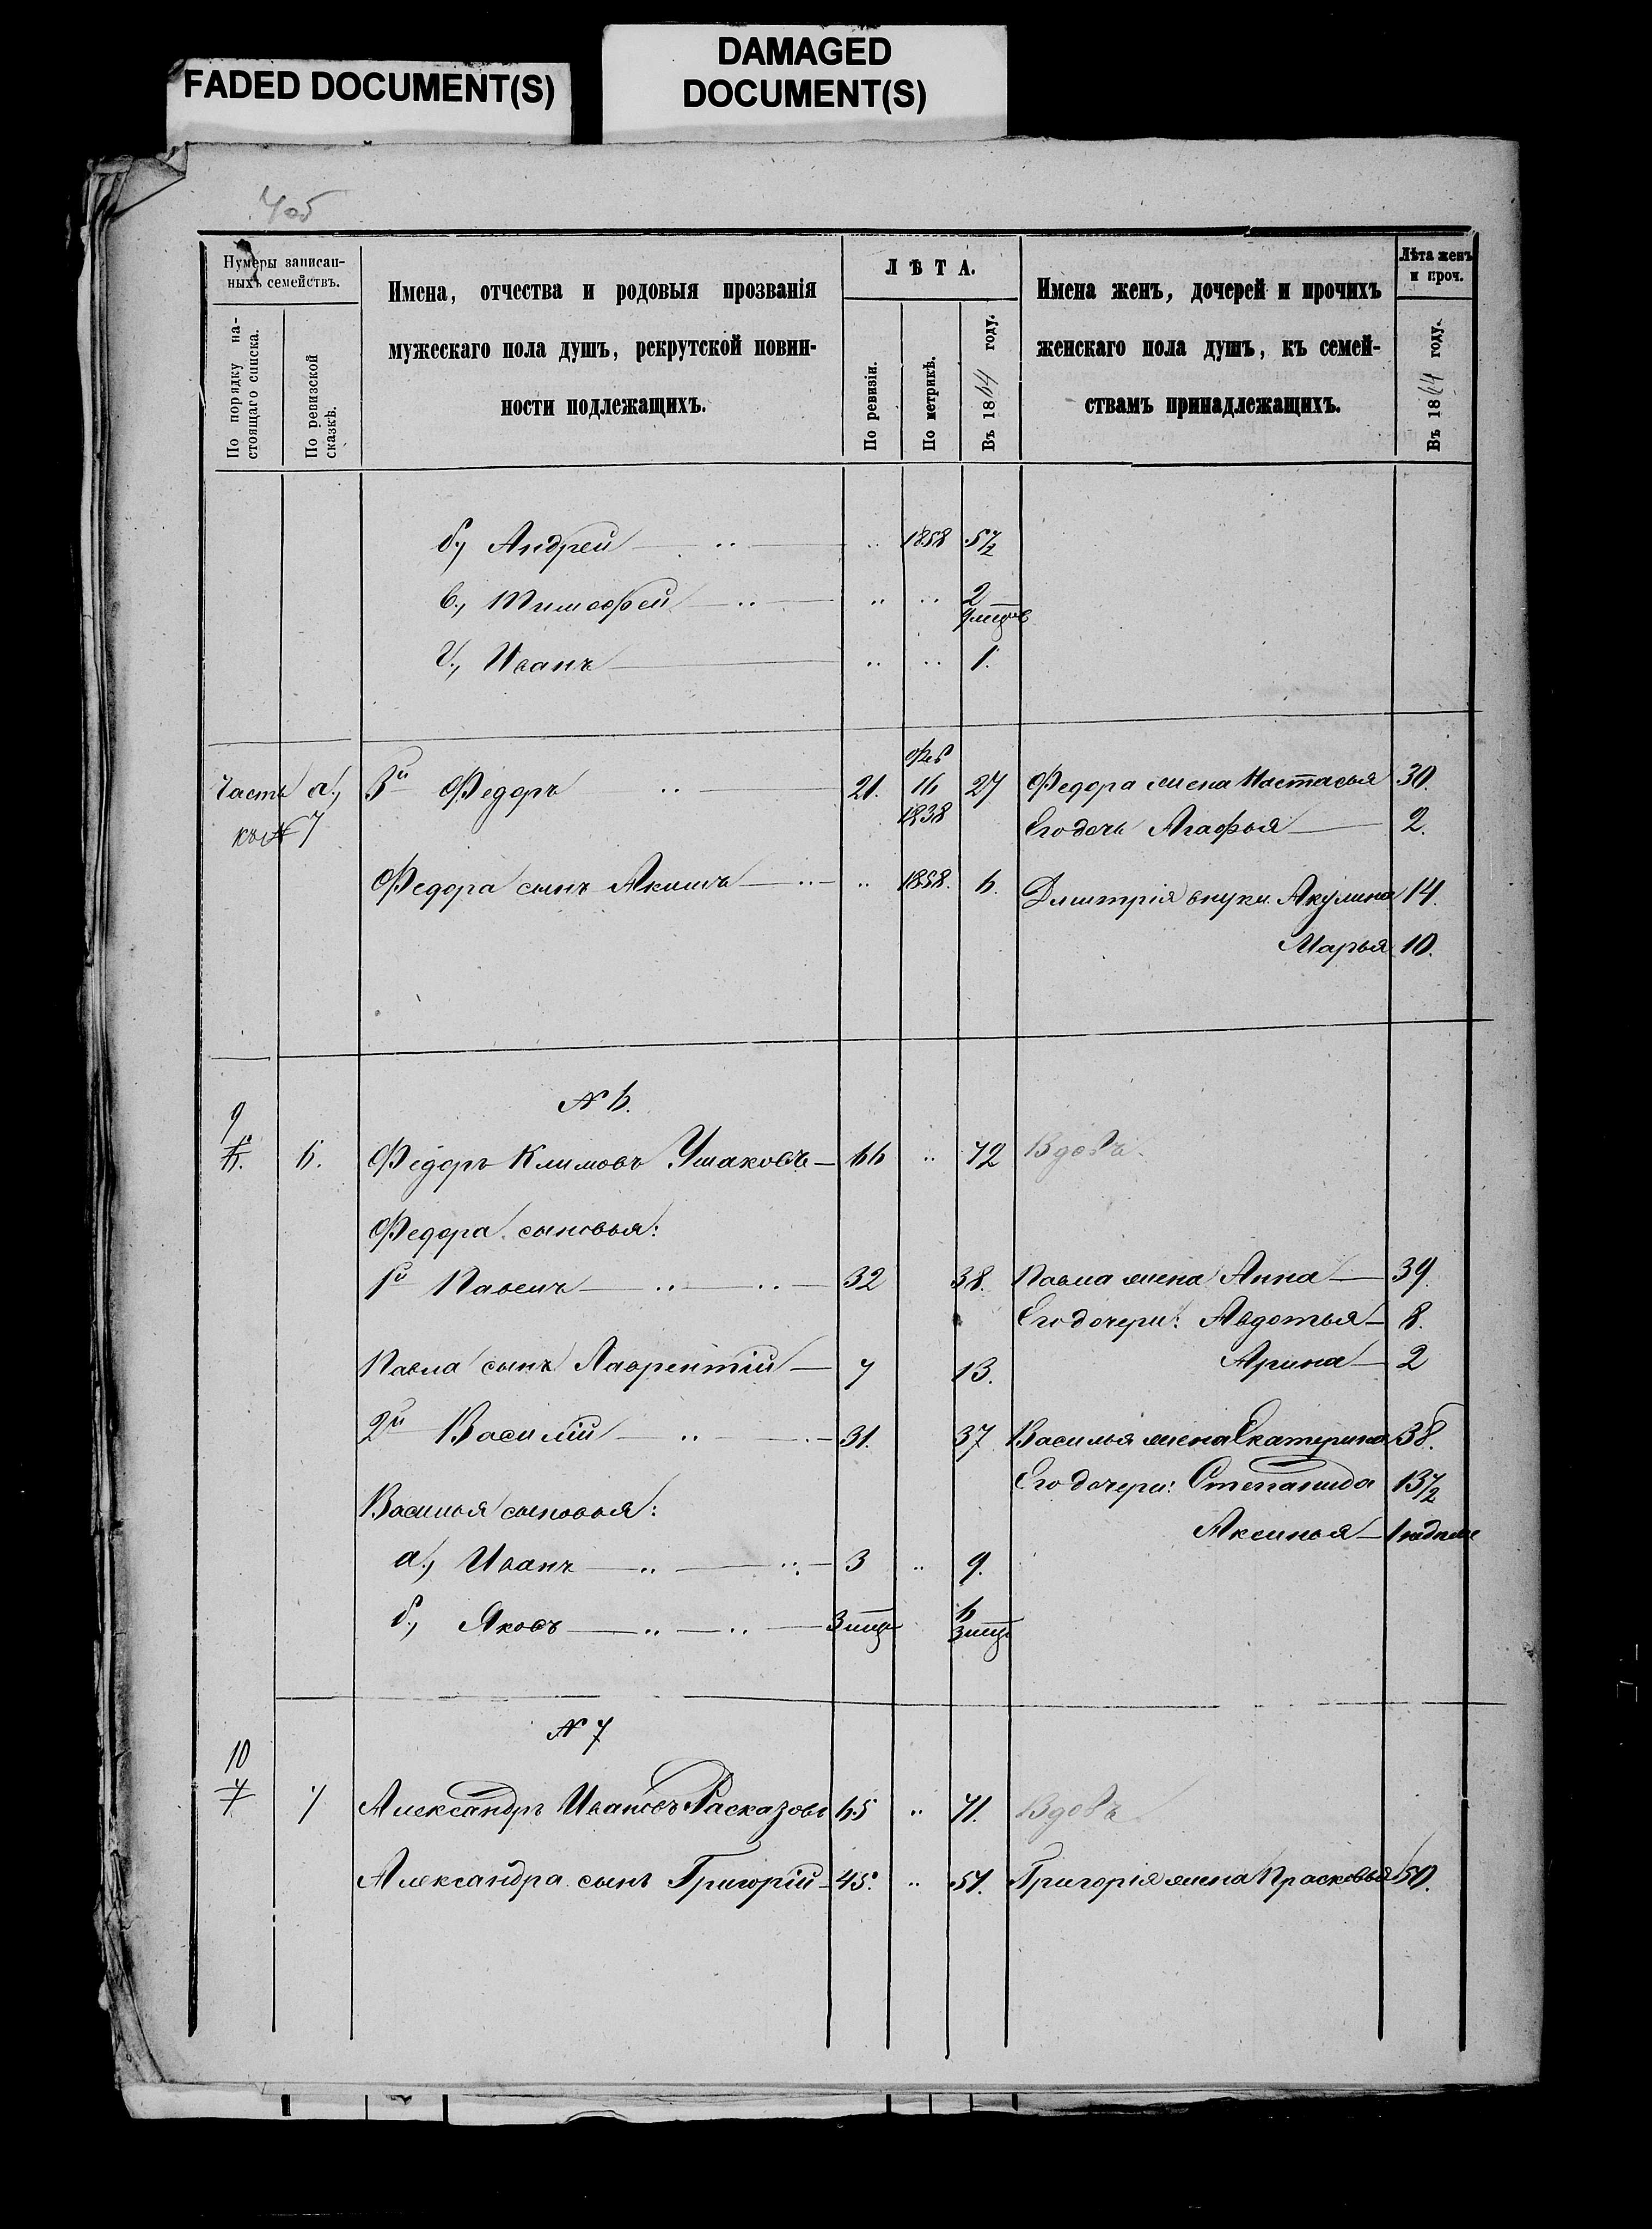 FADED DOCUMENT(S)
DAMAGED
DOCUMENT(S)
7об
Нумеры записан-
ныхъ семействъ.
По порядку на-
стоящаго списка.
По ревизской
сказкѣ.
Имена, отчества и родовыя прозванія
мужескаго пола душъ, рекрутской повин-
ности подлежащихъ.
ЛѢТА.
По ревизіи.
По метрикѣ.
Въ 1864 году.
Имена женъ, дочерей и прочихъ
женскаго пола душъ, къ семей-
ствамъ принадлежащихъ.
Лѣта женъ
и проч.
Въ 1864 году.
б., Андрей — .. — .. 1858 5½
в., Тимофей — .. — .. .. 2
9 мѣсяцев
г., Иванъ — .. .. 1.
Часть а.,
къ № 7
3й Федоръ .. — 21. Фев 16 1838 27 Федора жена Настасья 30.
Его дочь Агафья — 2.
Федора сынъ Акимъ — .. — .. 1858. 6. Дмитрія внуки Акулина 14.
Марья 10.
№ 6.
9
6. 6. Федоръ Климовъ Ушаковъ — 66 .. 72 Вдовъ.
Федора сыновья:
1й Павелъ — .. — .. — 32 38. Павла жена Анна — 39.
Его дочери: Авдотья — 8.
Павла сынъ Лаврентій — 7 13. Арина — 2
2й Василій — .. — .. — 31. 37 Василья жена Екатерина 38.
Его дочери: Степанида 13½
Василья сыновья:
Аксинья — 1
а., Иванъ — .. — .. — 3 .. 9.
б., Яковъ — .. — .. — 3 мѣс 6
3 мѣс
№ 7
10
7 7 Александръ Ивановъ Расказовъ 65 .. 71. Вдовъ
Александра сынъ Григорій — 45. .. 51. Григорія жена Прасковья 50.